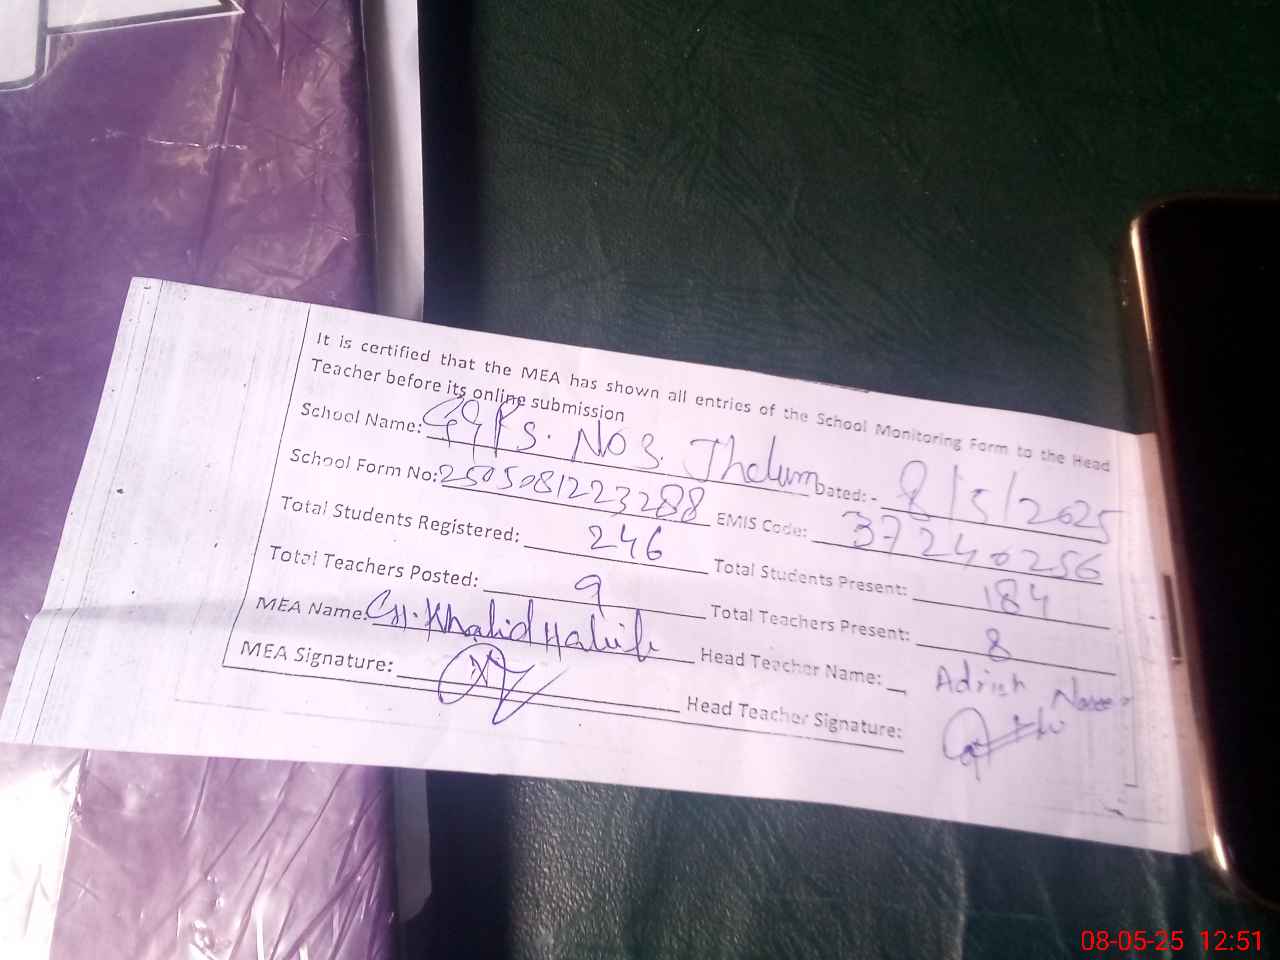 It is certified that the MEA has shown all entries of the School Monitoring Form to the Head
Teacher before its online submission
School Name: GGPS. NO 3. Jhelum Dated:- 8/5/2025
School Form No: 2505081223288 EMIS Code: 37240256
Total Students Registered: 246 Total Students Present: 184
Total Teachers Posted: 9 Total Teachers Present: 8
MEA Name: CH. Khalid Habib Head Teacher Name:
MEA Signature: Head Teacher Signature:
08-05-25 12:51